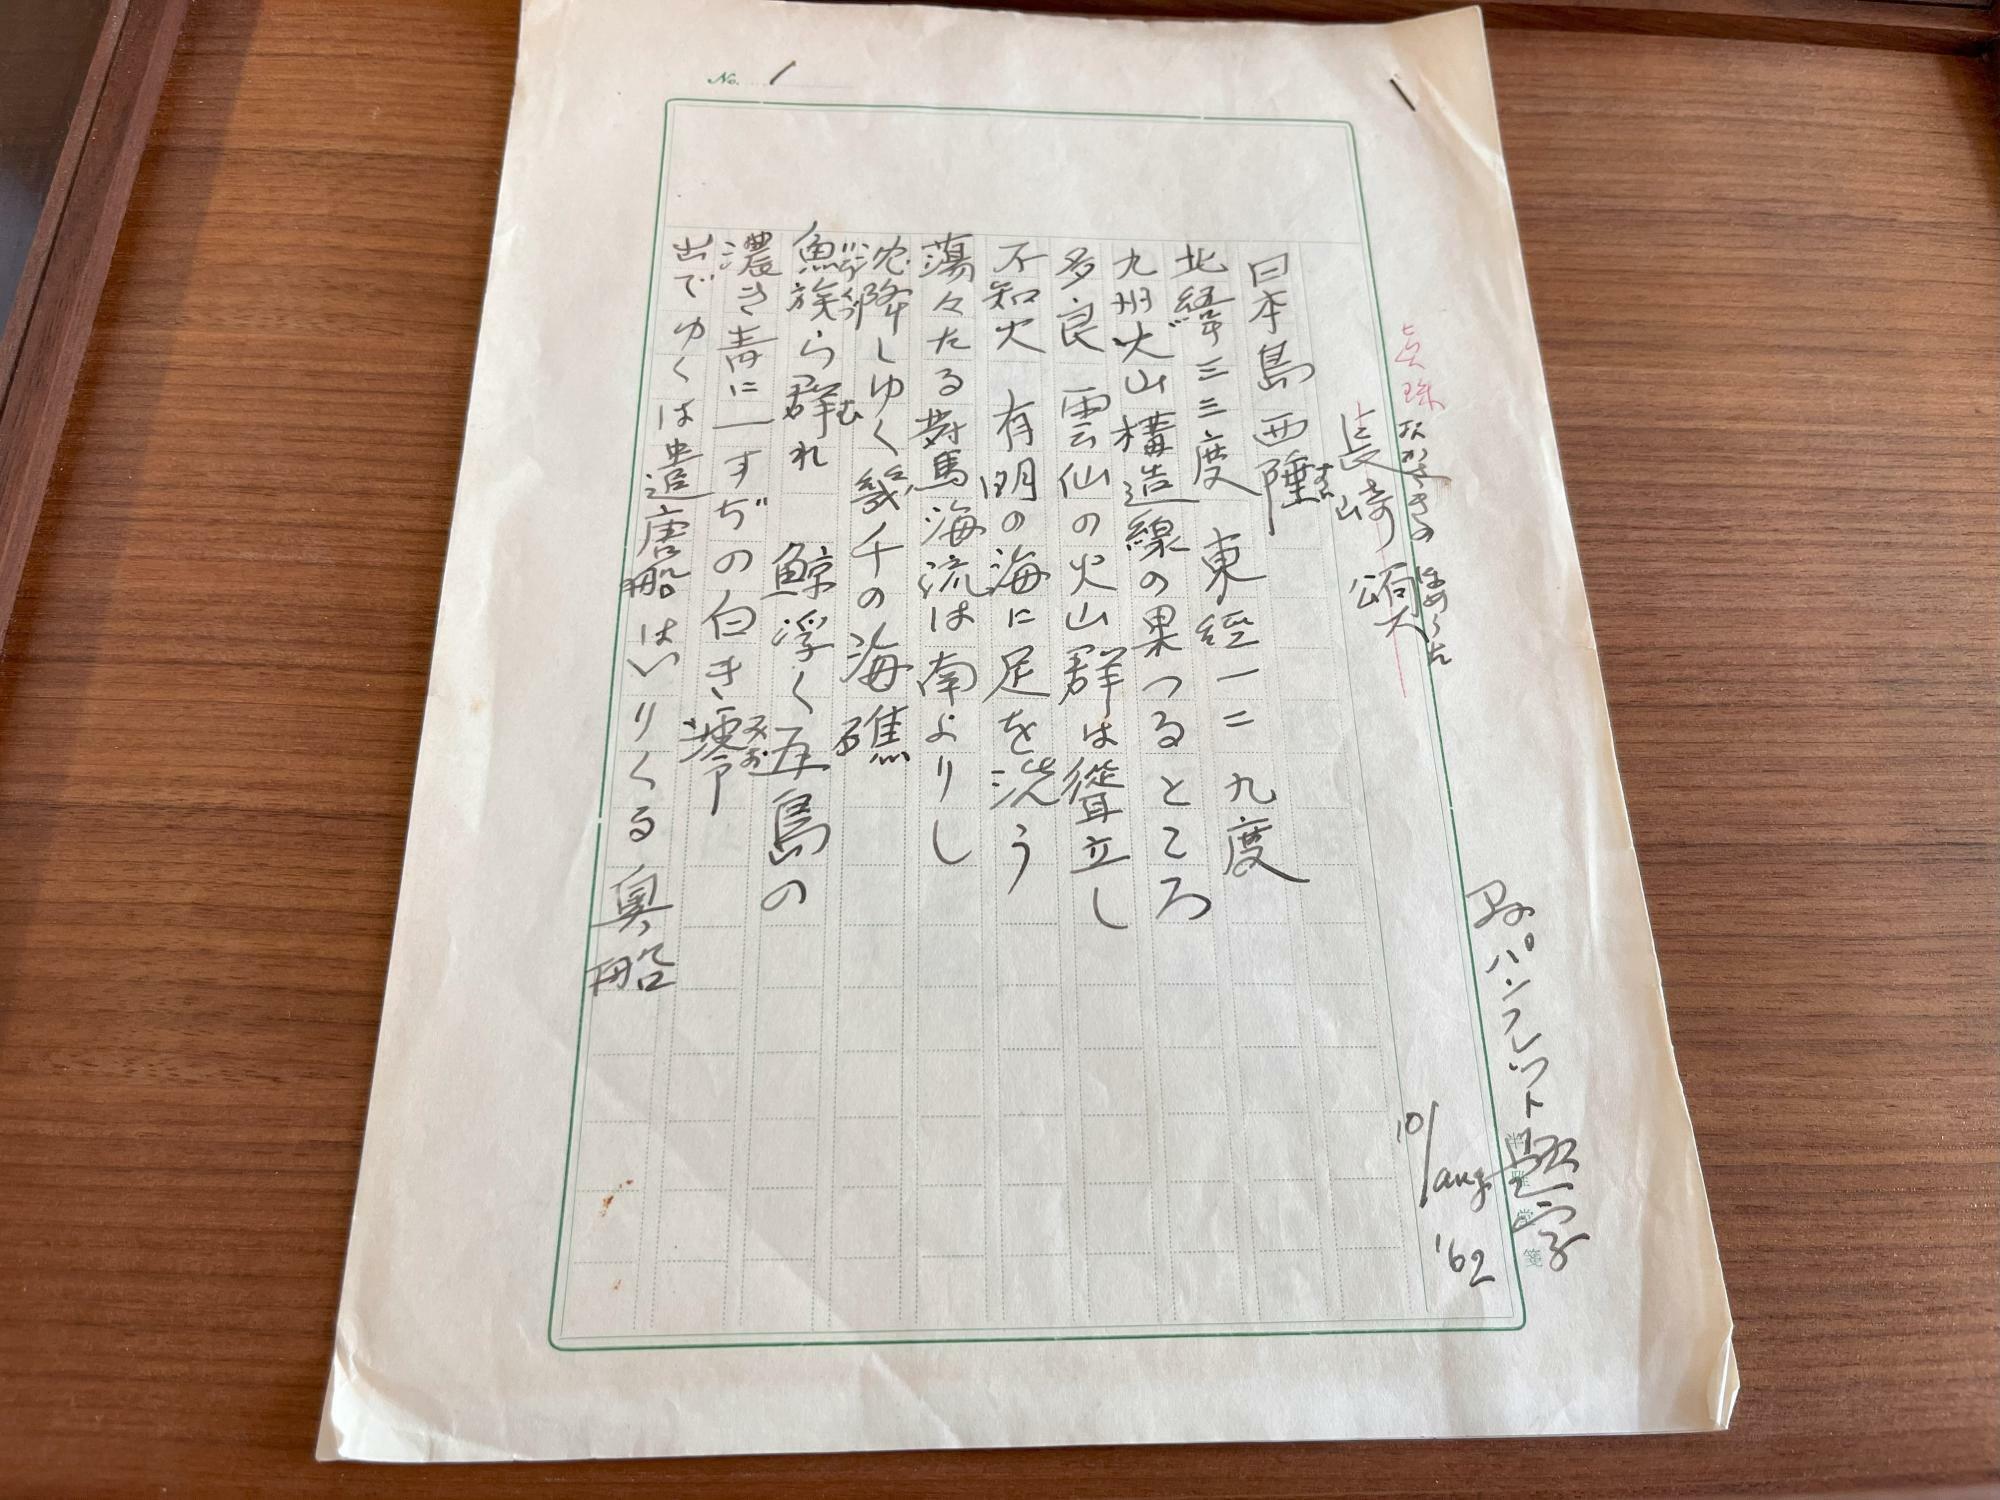 No. 1
真珠
ながさきの ほめうた
長崎頌
県パンフレット題字
10/aug. '62
日本島西陲
すい
北緯三三度 東經一二九度
九州火山構造線の果つるところ
多良 雲仙の火山群は聳立し
不知火 有明の海に足を洗う
蕩々たる對馬海流は南よりし
沈降しゆく幾千の海礁
魚族ら群れ 鯨浮く五島の
いろくづ
む
濃き青に一すぢの白き澪
みお
出でゆくは遣唐船はいりくる奥船
半雅堂箋